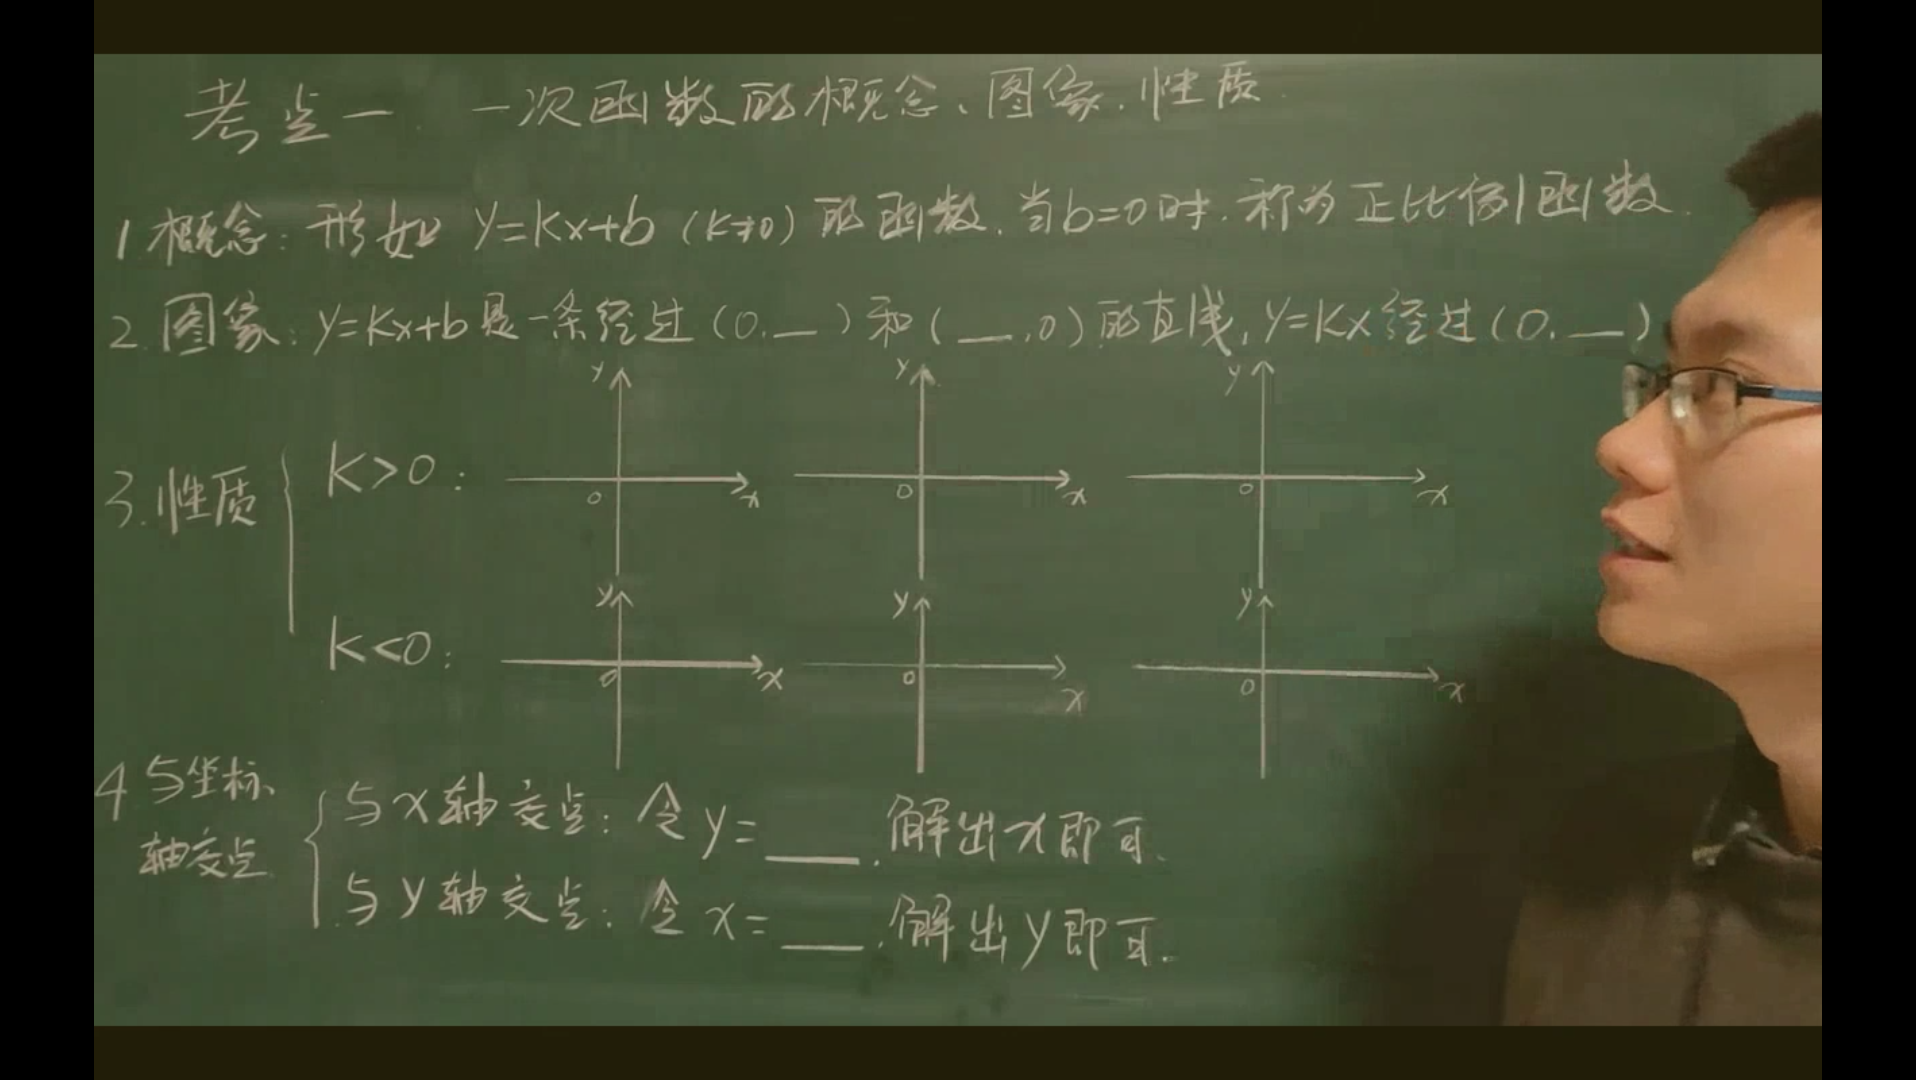 考点一 一次函数的概念、图象、性质
1 概念：形如 y=kx+b (k≠0) 的函数. 当b=0时. 称为正比例函数.
2. 图象：y=kx+b是一条经过(0.__)和(__,0)的直线, y=kx经过(0.__)
3.性质
k>0：
y x 0
y x 0
y x 0
k<0：
y x 0
y x 0
y x 0
4 与坐标轴交点
与x轴交点：令y=___.解出x即可.
与y轴交点：令x=___.解出y即可.